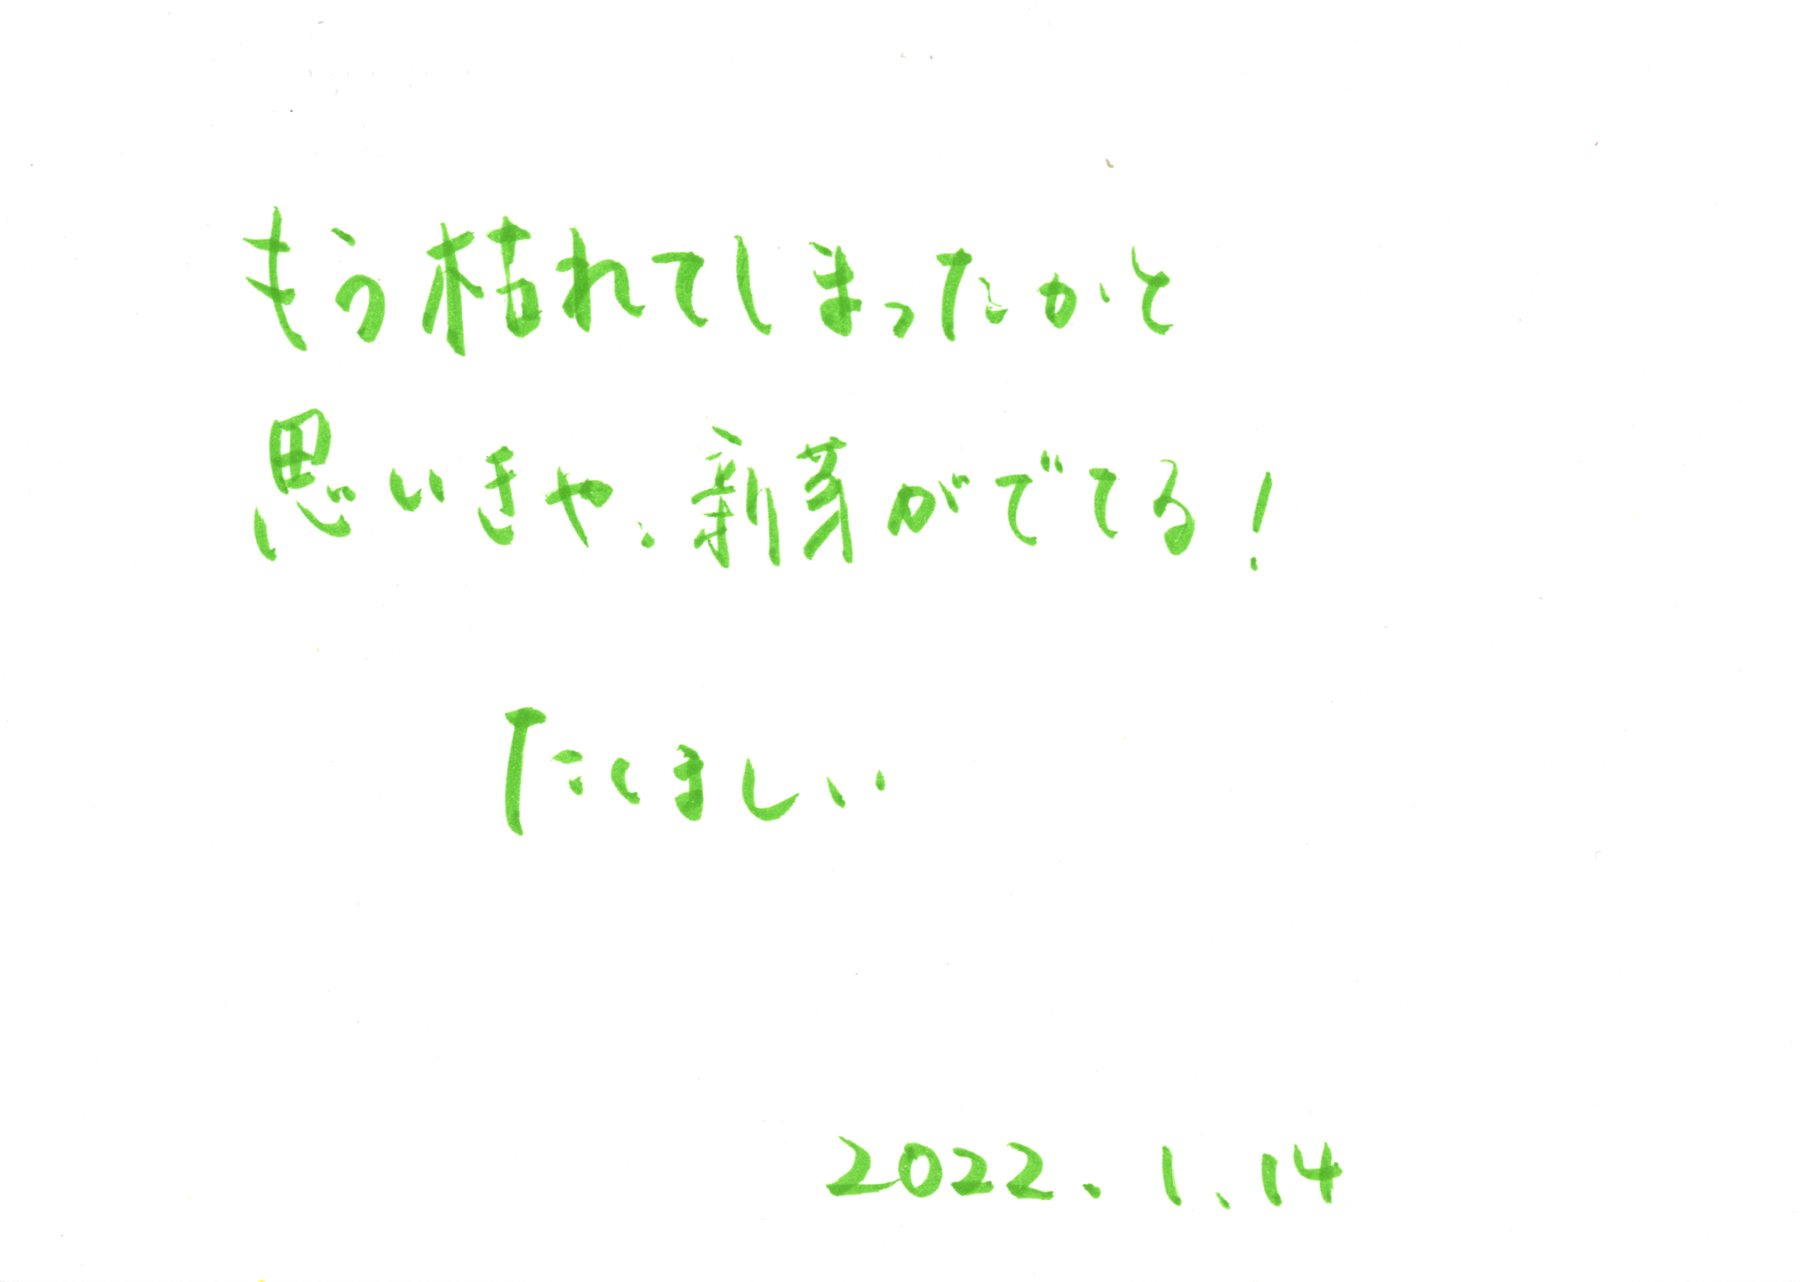 もう枯れてしまったかと
思いきや、新芽がでてる!
たくましい
2022.1.14